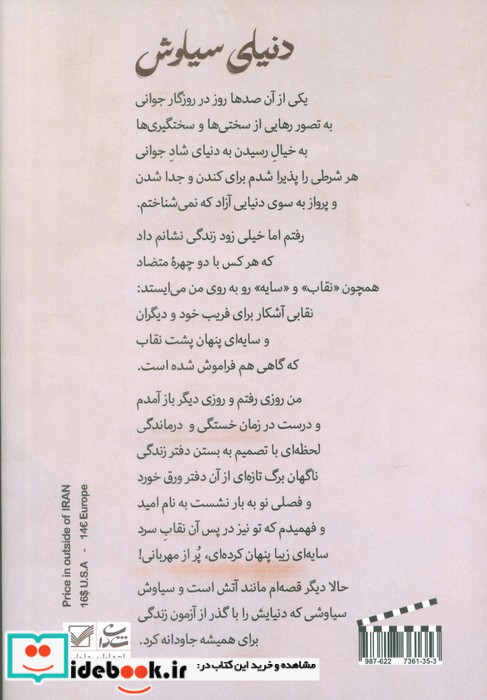 دنیای سیاوش
یکی از آن صدها روز در روزگار جوانی
به تصور رهایی از سختی‌ها و سختگیری‌ها
به خیالِ رسیدن به دنیای شادِ جوانی
هر شرطی را پذیرا شدم برای کندن و جدا شدن
و پرواز به سوی دنیایی آزاد که نمی‌شناختم.
رفتم اما خیلی زود زندگی نشانم داد
که هر کس با دو چهرهٔ متضاد
همچون «نقاب» و «سایه» رو به روی من می‌ایستد:
نقابی آشکار برای فریب خود و دیگران
و سایه‌ای پنهان پشت نقاب
که گاهی هم فراموش شده است.
من روزی رفتم و روزی دیگر باز آمدم
و درست در زمان خستگی و درماندگی
لحظه‌ای با تصمیم به بستن دفتر زندگی
ناگهان برگ تازه‌ای از آن دفتر ورق خورد
و فصلی نو به بار نشست به نام امید
و فهمیدم که تو نیز در پس آن نقابِ سرد
سایه‌ای زیبا پنهان کرده‌ای، پُر از مهربانی!
حالا دیگر قصه‌ام مانند آتش است و سیاوش
سیاوشی که دنیایش را با گذر از آزمون زندگی
برای همیشه جاودانه کرد.
Price in outside of IRAN
16$ U.S.A - 14€ Europe
987-622 7361-35-3
idebook.ir
مشاهده و خرید این کتاب در: